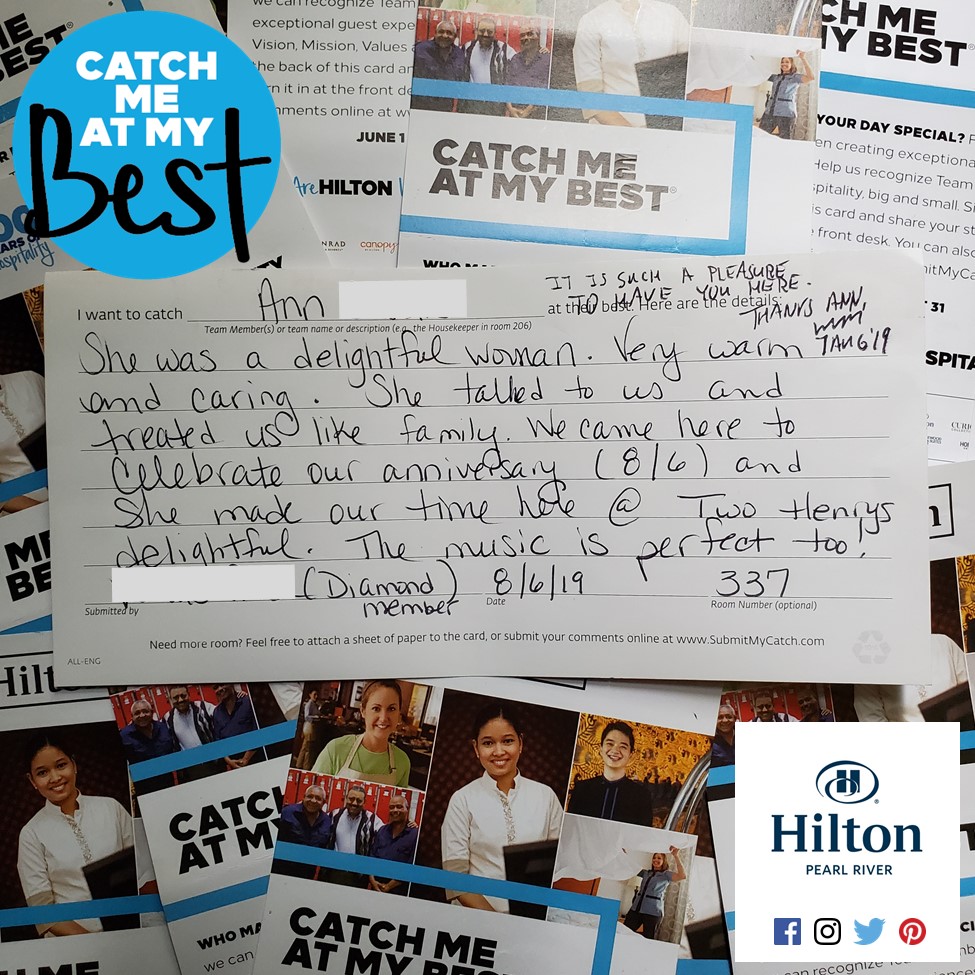 CATCH
ME
AT MY
Best
we can recognize Team
exceptional guest expe
Vision, Mission, Values
the back of this card an
n it in at the front de
ments online at w
JUNE 1
AreHILTON
canopy
CATCH ME
AT MY BEST
CH ME
MY BEST
YOUR DAY SPECIAL?
en creating exceptiona
Help us recognize Team
pitality, big and small. Si
is card and share your st
front desk. You can also
mitMyCa
31
SPITA
WHO MA
IT IS SUCH A PLEASURE
TO HAVE YOU HERE.
THANKS ANN,
7 AUG '19
I want to catch Ann at their best. Here are the details:
Team Member(s) or team name or description (e.g. the Housekeeper in room 206)
She was a delightful woman. Very warm
and caring. She talked to us and
treated us like family. We came here to
celebrate our anniversary (8/6) and
She made our time here @ Two Henrys
delightful. The music is perfect too!
(Diamond member) 8/6/19 337
Submitted by Date Room Number (optional)
Need more room? Feel free to attach a sheet of paper to the card, or submit your comments online at www.SubmitMyCatch.com
ALL-ENG
ME
BE
Hilt
CATCH
AT MY
WHO MA
we can
CATCH ME
AT MY BEST
Hilton
PEARL RIVER